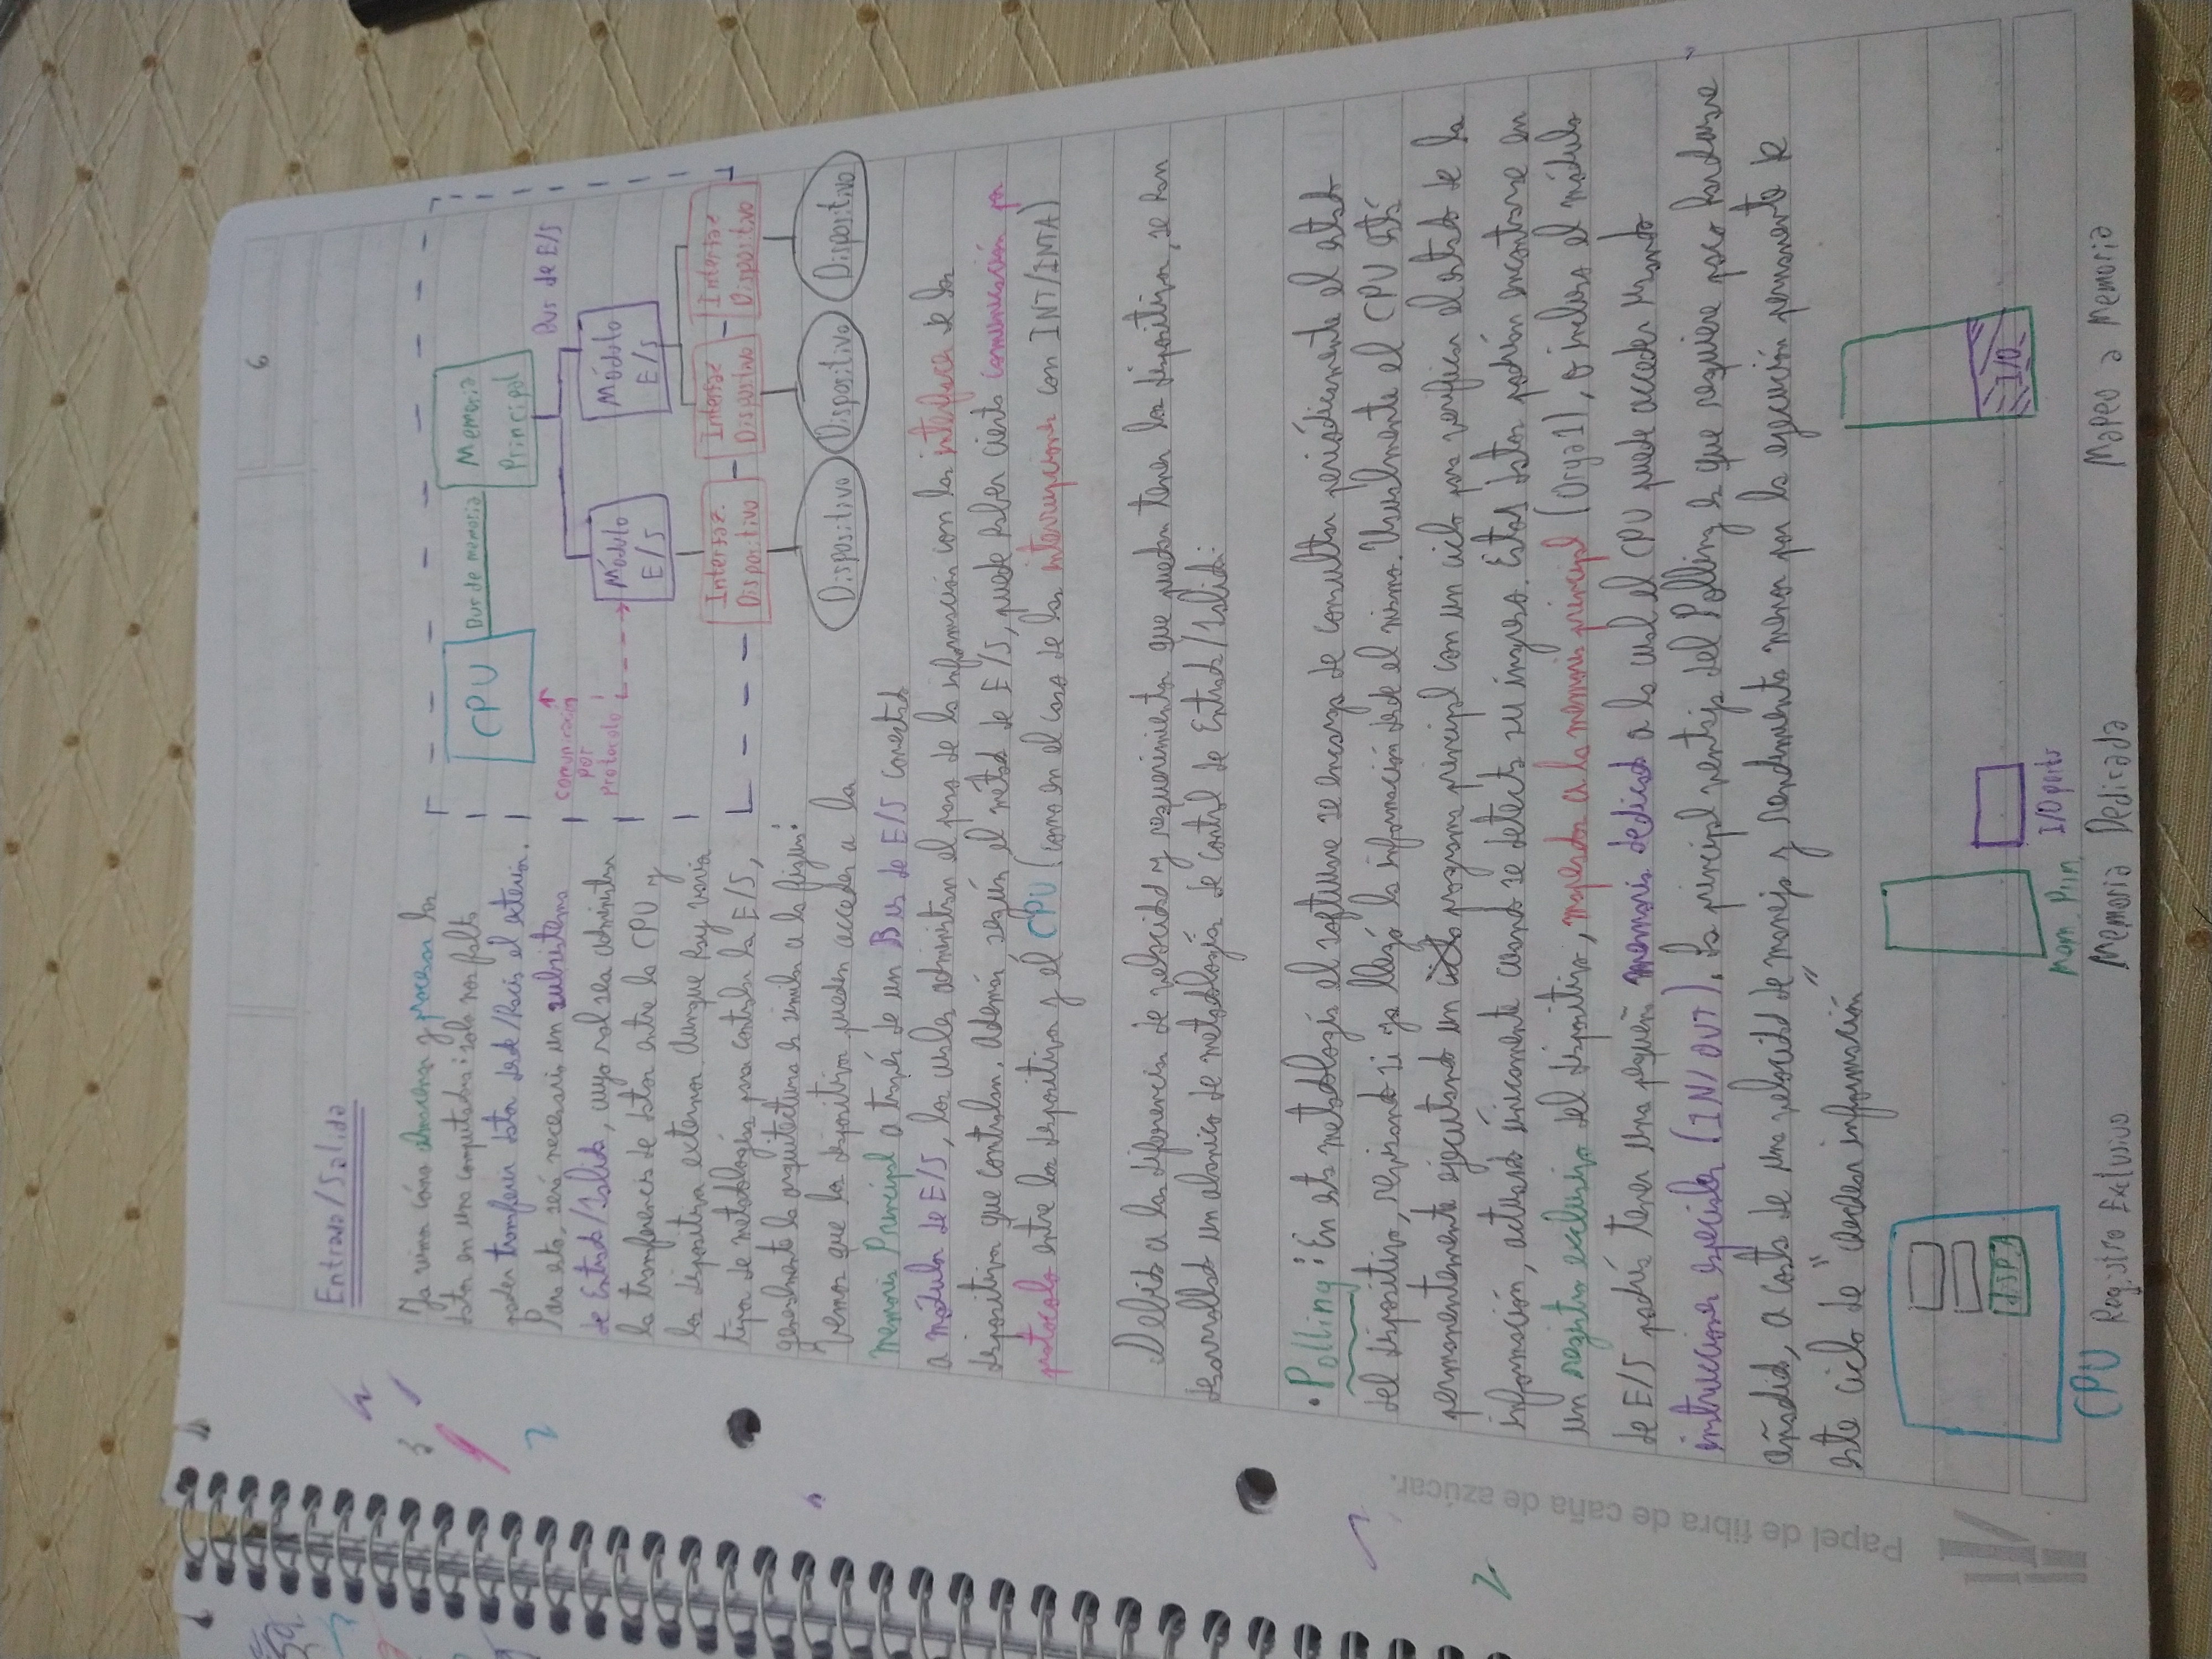 6
Entrada/Salida
Ya vimos cómo almacenar y procesar los
datos en una computadora: solo nos falta
poder transferir datos desde/hacia el exterior.
Para esto, será necesario un subsistema
de Entrada/Salida, cuyo rol sea administrar
la transferencia de datos entre la CPU y
los dispositivos externos. Aunque hay varios
tipos de metodologías para controlar la E/S,
generalmente la arquitectura es similar a la figura:
Vemos que los dispositivos pueden acceder a la
Memoria Principal a través de un Bus de E/S conectado
a módulos de E/S, los cuales administran el paso de la información con las interfaces de los
dispositivos que controlan. Además, según el método de E/S, puede haber cierta comunicación por
protocolo entre los dispositivos y el CPU (como en el caso de las interrupciones con INT/INTA)
CPU
Bus de memoria
Memoria
Principal
Bus de E/S
comunicación
por
protocolo
Módulo
E/S
Módulo
E/S
Interfaz.
Dispositivo
Interfaz
Dispositivo
Interfaz
Dispositivo
Dispositivo
Dispositivo
Dispositivo
Debido a las diferencias de velocidad y requerimientos que puedan tener los dispositivos, se han
desarrollado un abanico de metodologías de control de Entrada/Salida:
• Polling: En esta metodología el software se encarga de consultar periódicamente el estado
del dispositivo, revisando si ya llegó la información desde el mismo. Usualmente el CPU está
permanentemente ejecutando un programa principal con un ciclo para verificar el estado de la
información, actuando únicamente cuando se detecta su ingreso. Estos datos podrían encontrarse en
un registro exclusivo del dispositivo, mapeados a la memoria principal (Orga1), o incluso el módulo
de E/S podría tener una pequeña memoria dedicada a la cual el CPU puede acceder usando
instrucciones especiales (IN/OUT). La principal ventaja del Polling es que requiere poco hardware
añadido, a costa de una velocidad de manejo y rendimiento menor por la ejecución permanente de
este ciclo de "chequear información"
DISP.
CPU
Registro Exclusivo
Mem. Prin.
I/O ports
Memoria Dedicada
I/O
Mapeo a Memoria
Papel de fibra de caña de azúcar.